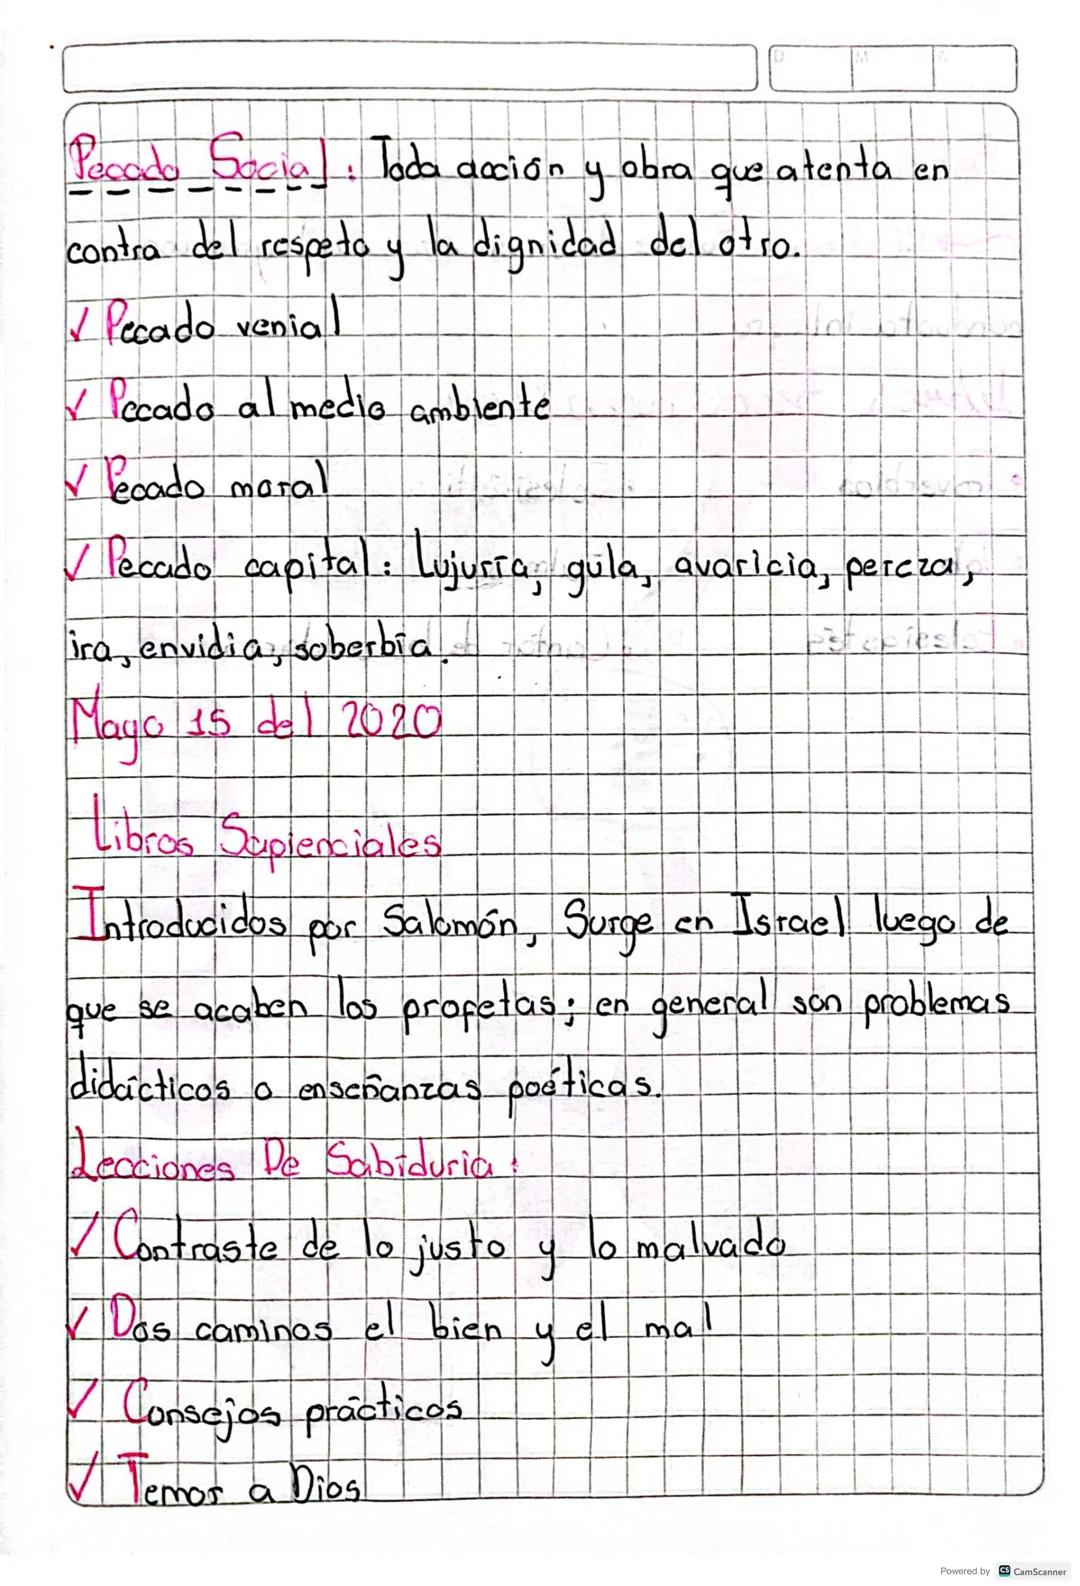 D M A
Pecado Social: Toda acción y obra que atenta en
contra del respeto y la dignidad del otro.
✓ Pecado venial
✓ Pecado al medio ambiente
✓ Pecado moral
✓ Pecado capital: Lujuria, gula, avaricia, pereza,
ira, envidia, soberbia.
Mayo 15 del 2020
Libros Sapienciales
Introducidos por Salomón, Surge en Israel luego de
que se acaben los profetas; en general son problemas
didácticos o enseñanzas poéticas.
Lecciones De Sabiduria:
✓ Contraste de lo justo y lo malvado
✓ Dos caminos el bien y el mal
✓ Consejos prácticos
✓ Temor a Dios
Powered by CS CamScanner